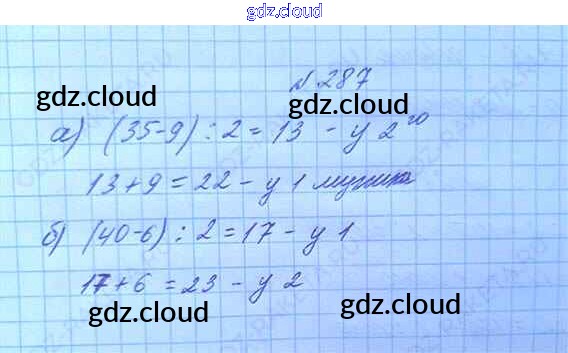 gdz.cloud
№ 287
gdz.cloud gdz.cloud
а) (35-9) : 2 = 13 - у 2го
13 + 9 = 22 - у 1
б) (40-6) : 2 = 17 - у 1
17 + 6 = 23 - у 2
gdz.cloud gdz.cloud